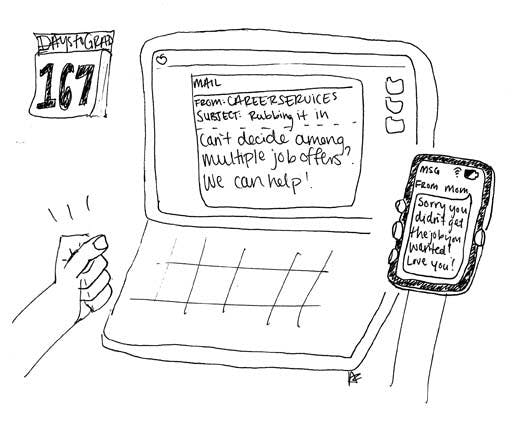 DAYS to GRAD
167
MAIL
FROM: CAREER SERVICES
SUBJECT: Rubbing it in
Can't decide among
multiple job offers?
We can help!
MSG
From mom
Sorry you
didn't get
the job you
wanted!
Love you!
AF